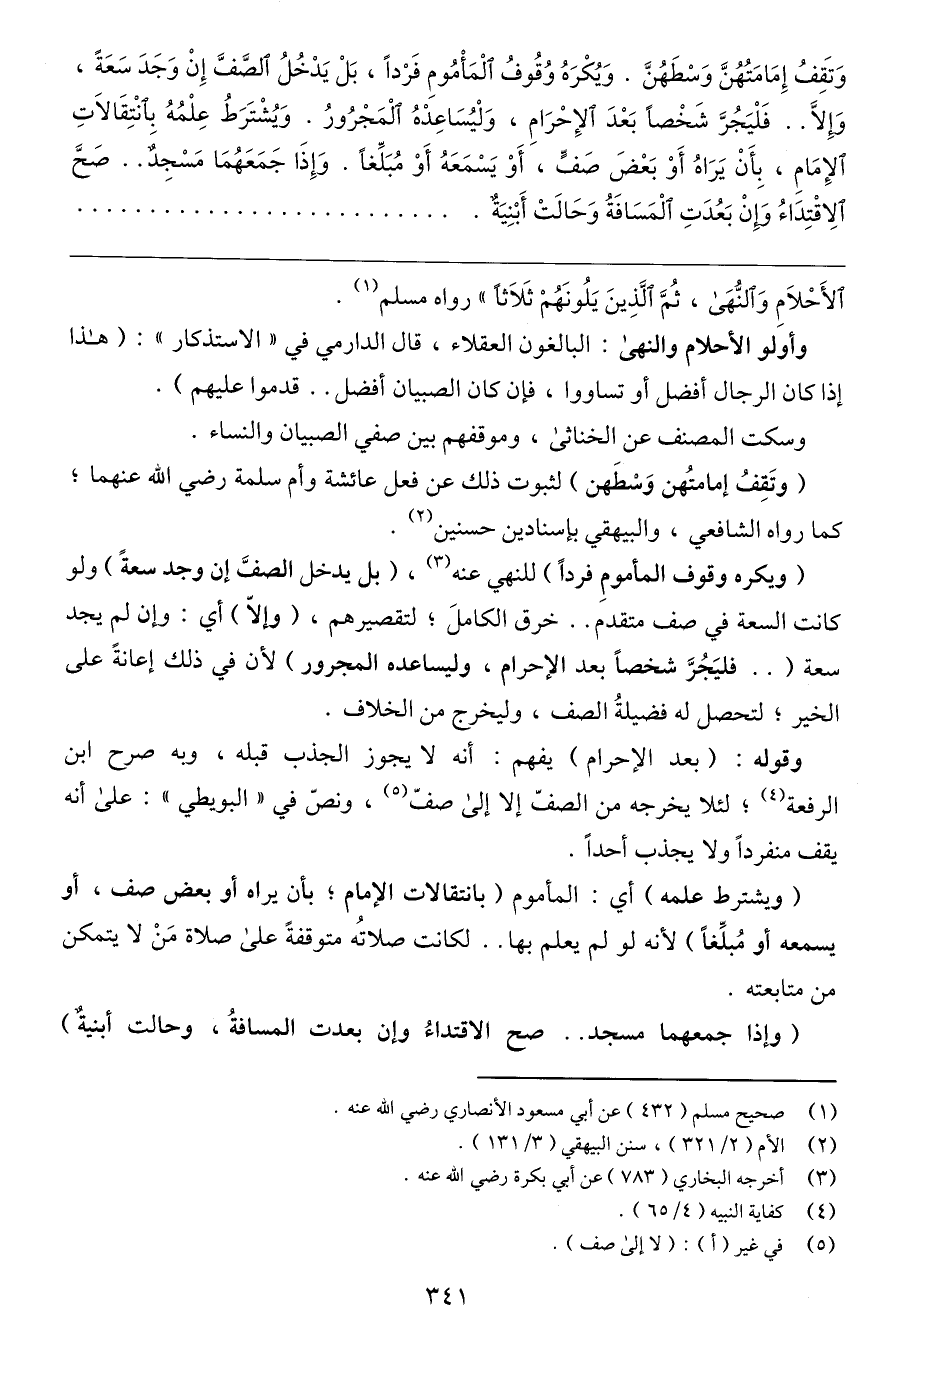 وَتَقِفُ إِمَامَتُهُنَّ وَسْطَهُنَّ . وَيُكْرَهُ وُقُوفُ ٱلْمَأْمُومِ فَرْداً ، بَلْ يَدْخُلُ ٱلصَّفَّ إِنْ وَجَدَ سَعَةً ،
وَإِلاَّ . . فَلْيَجُرَّ شَخْصاً بَعْدَ ٱلإِحْرَامِ ، وَلْيُسَاعِدْهُ ٱلْمَجْرُورُ . وَيُشْتَرَطُ عِلْمُهُ بِٱنْتِقَالاَتِ
ٱلإِمَامِ ، بِأَنْ يَرَاهُ أَوْ بَعْضَ صَفٍّ ، أَوْ يَسْمَعَهُ أَوْ مُبَلِّغاً . وَإِذَا جَمَعَهُمَا مَسْجِدٌ . . صَحَّ
ٱلِاقْتِدَاءُ وَإِنْ بَعُدَتِ ٱلْمَسَافَةُ وَحَالَتْ أَبْنِيَةٌ . . . . . . . . . . . . . . . . . . . . . . . . . . .
ٱلأَحْلاَمِ وَٱلنُّهَىٰ ، ثُمَّ ٱلَّذِينَ يَلُونَهُمْ ثَلاَثاً » رواه مسلم(١) .
وأولو الأحلام والنهىٰ : البالغون العقلاء ، قال الدارمي في « الاستذكار » : ( هـٰذا
إذا كان الرجال أفضل أو تساووا ، فإن كان الصبيان أفضل . . قدموا عليهم ) .
وسكت المصنف عن الخناثىٰ ، وموقفهم بين صفي الصبيان والنساء .
( وتَقِفُ إمامتُهن وَسْطَهن ) لثبوت ذلك عن فعل عائشة وأم سلمة رضي الله عنهما ؛
كما رواه الشافعي ، والبيهقي بإسنادين حسنين(٢) .
( ويكره وقوف المأمومِ فرداً ) للنهي عنه(٣) ، ( بل يدخل الصفَّ إن وجد سعةً ) ولو
كانت السعة في صف متقدم . . خرق الكاملَ ؛ لتقصيرهم ، ( وإلاّ ) أي : وإن لم يجد
سعة ( . . فليَجُرَّ شخصاً بعد الإحرام ، وليساعده المجرور ) لأن في ذلك إعانةً على
الخير ؛ لتحصل له فضيلةُ الصف ، وليخرج من الخلاف .
وقوله : ( بعد الإحرام ) يفهم : أنه لا يجوز الجذب قبله ، وبه صرح ابن
الرفعة(٤) ؛ لئلا يخرجه من الصفّ إلا إلىٰ صفّ(٥) ، ونصّ في « البويطي » : علىٰ أنه
يقف منفرداً ولا يجذب أحداً .
( ويشترط علمه ) أي : المأموم ( بانتقالات الإمام ؛ بأن يراه أو بعض صف ، أو
يسمعه أو مُبلِّغاً ) لأنه لو لم يعلم بها . . لكانت صلاتُه متوقفةً علىٰ صلاة مَنْ لا يتمكن
من متابعته .
( وإذا جمعهما مسجد . . صح الاقتداءُ وإن بعدت المسافةُ ، وحالت أبنيةٌ )
(١) صحيح مسلم ( ٤٣٢ ) عن أبي مسعود الأنصاري رضي الله عنه .
(٢) الأم ( ٢/ ٣٢١ ) ، سنن البيهقي ( ٣/ ١٣١ ) .
(٣) أخرجه البخاري ( ٧٨٣ ) عن أبي بكرة رضي الله عنه .
(٤) كفاية النبيه ( ٤/ ٦٥ ) .
(٥) في غير ( أ ) : ( لا إلىٰ صف ) .
٣٤١